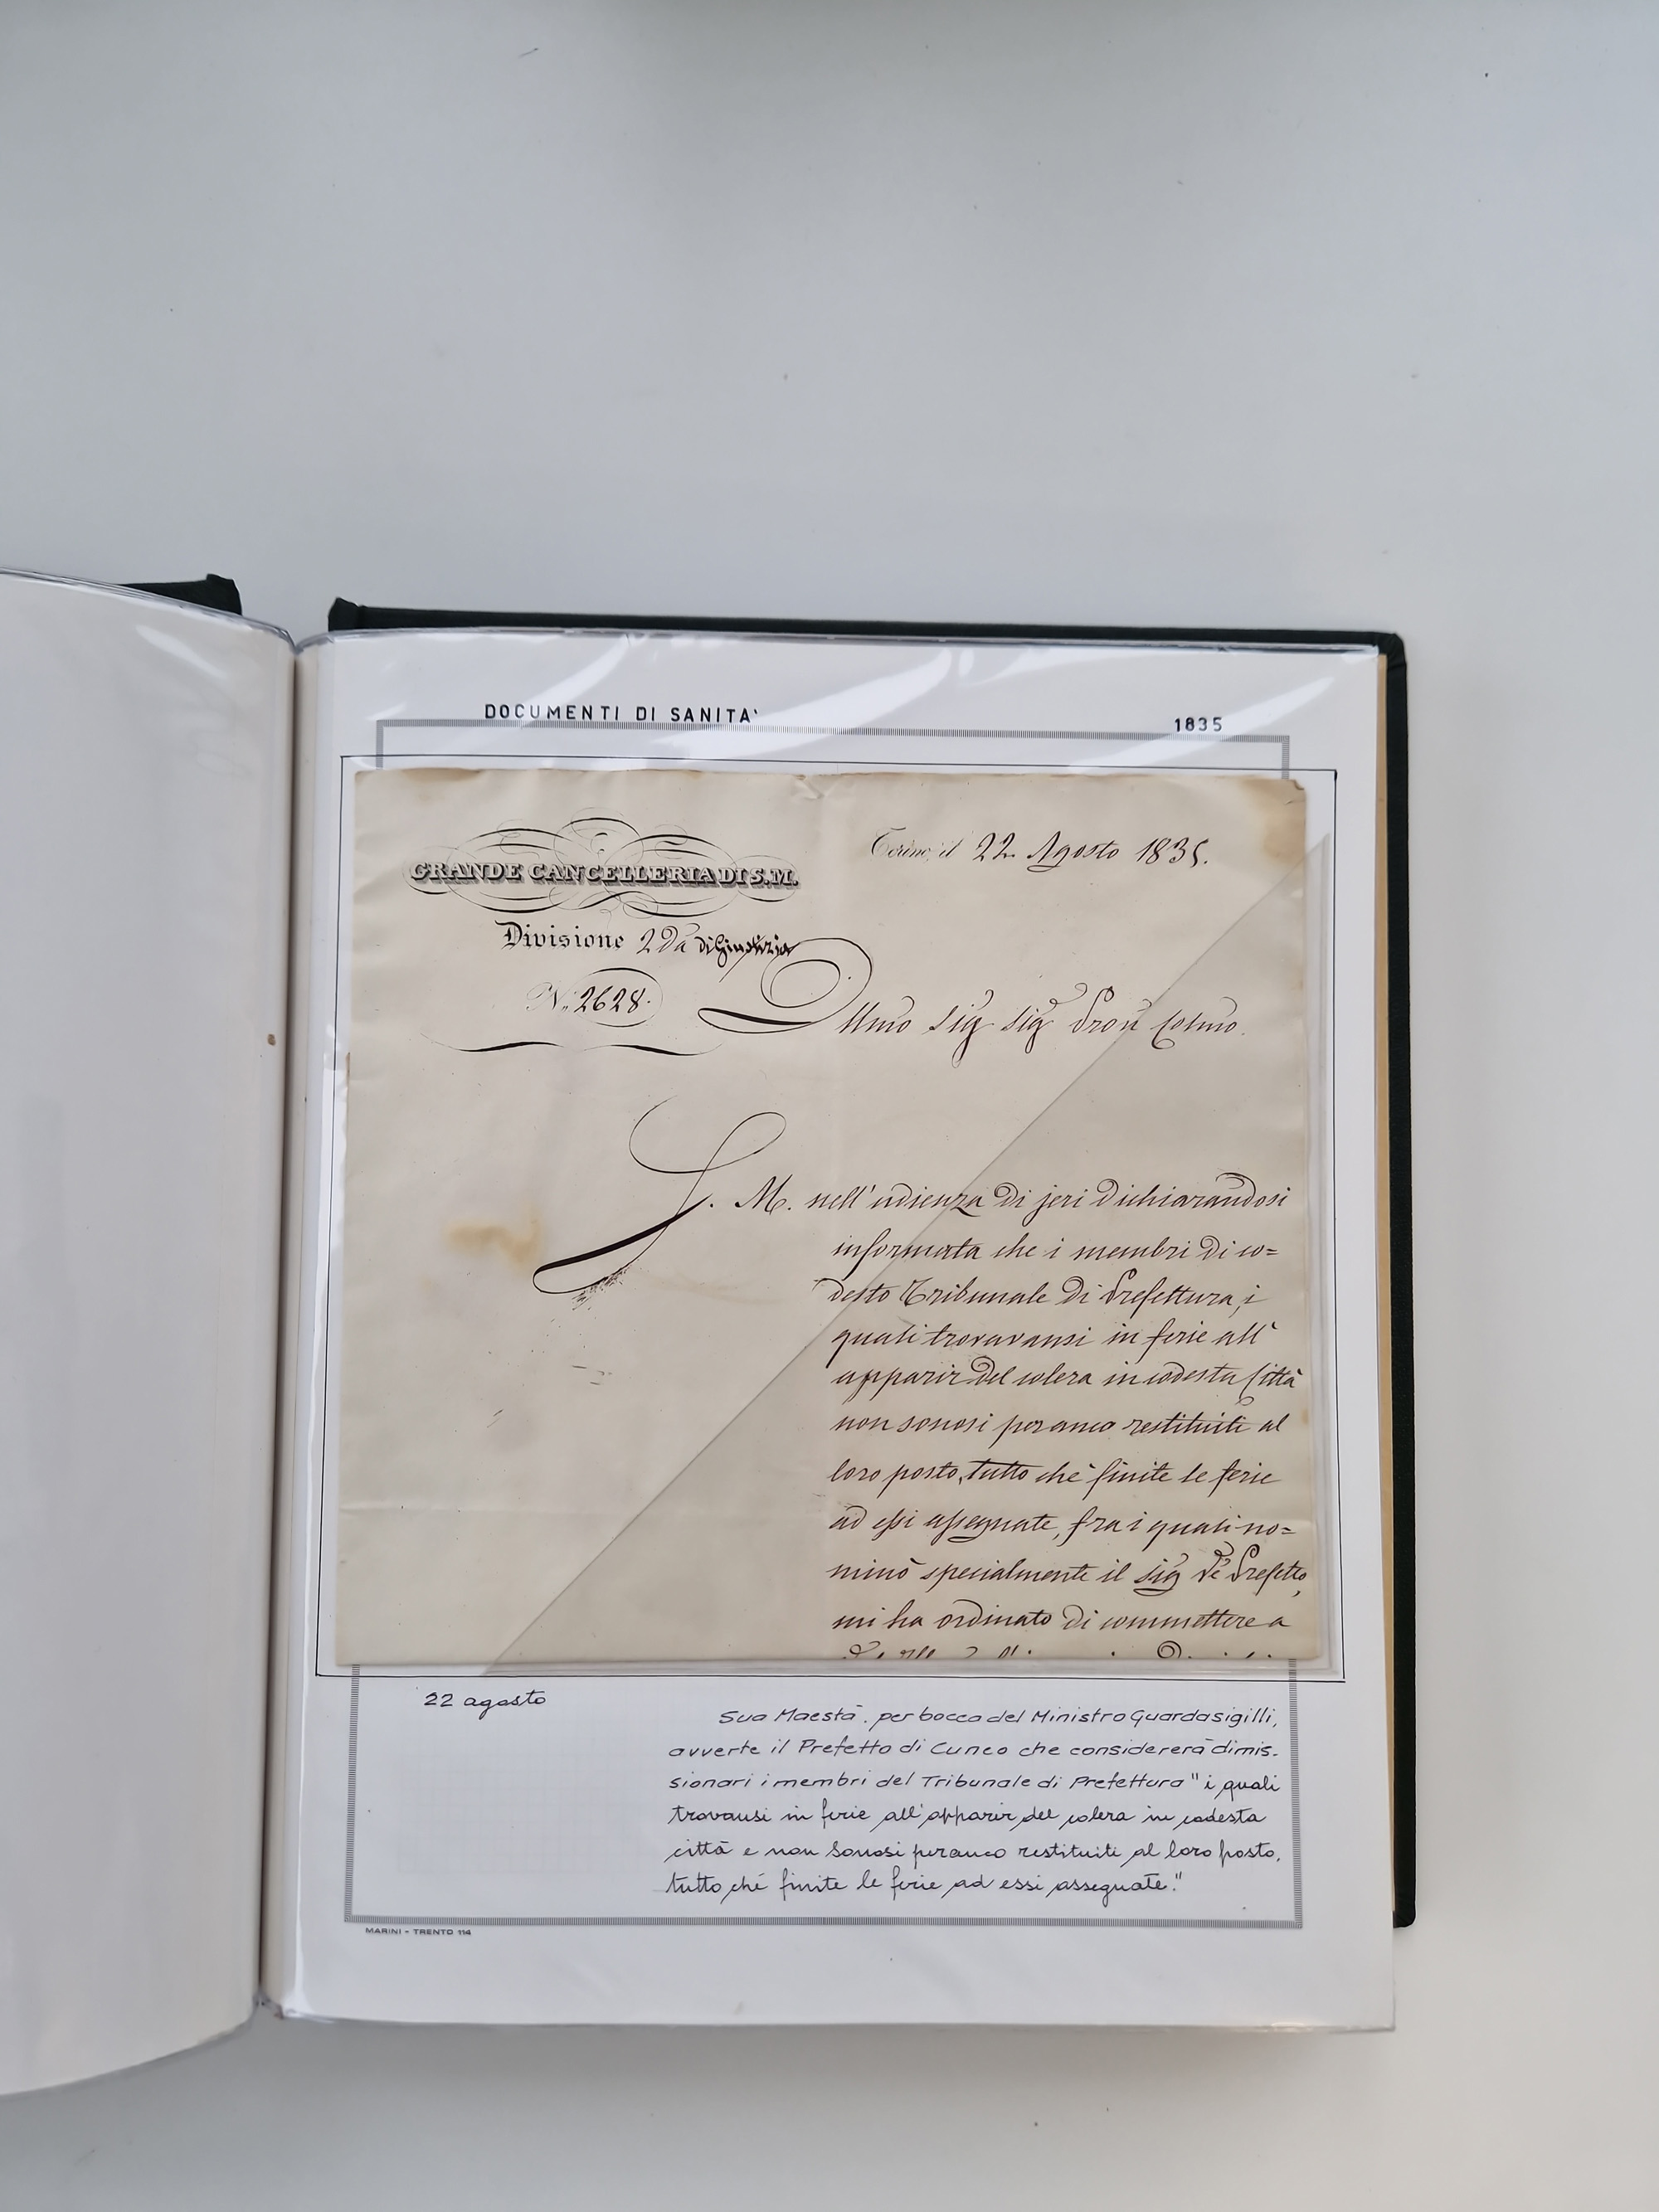 DOCUMENTI DI SANITA'
1835
GRANDE CANCELLERIA DI S.M.
Torino, il 22 Agosto 1835.
Divisione 2da di Giustizia
N. 2628.
Illmo Sig Sig Pron Colmo.
S. M. nell'udienza di jeri dichiarandosi
informata che i membri di co=
desto Tribunale di Prefettura, i
quali trovavansi in ferie all'
apparir del colera in codesta Città
non sonosi peranco restituiti al
loro posto, tutto chè finite le ferie
ad essi assegnate, fra i quali no=
minò specialmente il Sig Prefetto,
mi ha ordinato di commettere a
22 agosto
Sua Maestà, per bocca del Ministro Guardasigilli,
avverte il Prefetto di Cuneo che considererà dimis-
sionari i membri del Tribunale di Prefettura "i quali
trovansi in ferie all'apparir del colera in codesta
città e non sonosi peranco restituiti al loro posto,
tutto ché finite le ferie ad essi assegnate."
MARINI - TRENTO 114